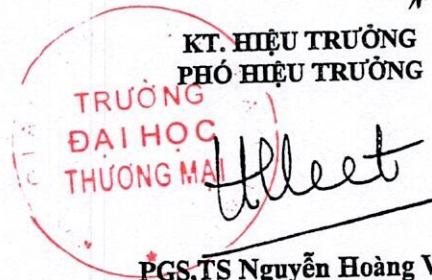 KT. HIỆU TRƯỞNG
PHÓ HIỆU TRƯỞNG
TRƯỜNG
ĐẠI HỌC
THƯƠNG MẠI
PGS,TS Nguyễn Hoàng